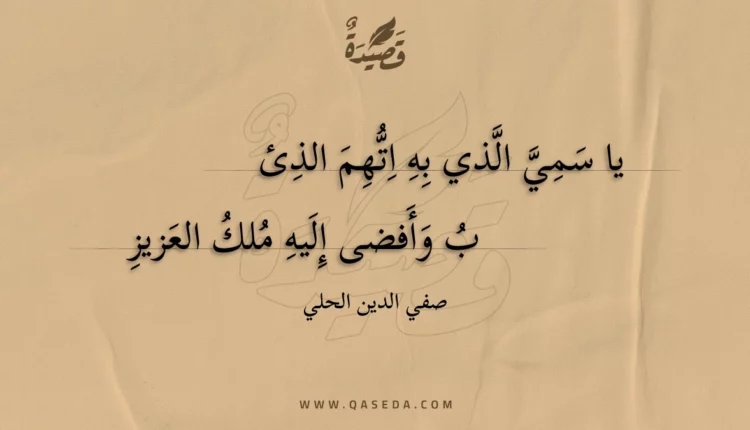 قَصِيدَةٌ
يا سَمِيَّ الَّذي بِهِ اِتُّهِمَ الذِئ
بُ وَأَفضى إِلَيهِ مُلكُ العَزيزِ
صفي الدين الحلي
WWW.QASEDA.COM